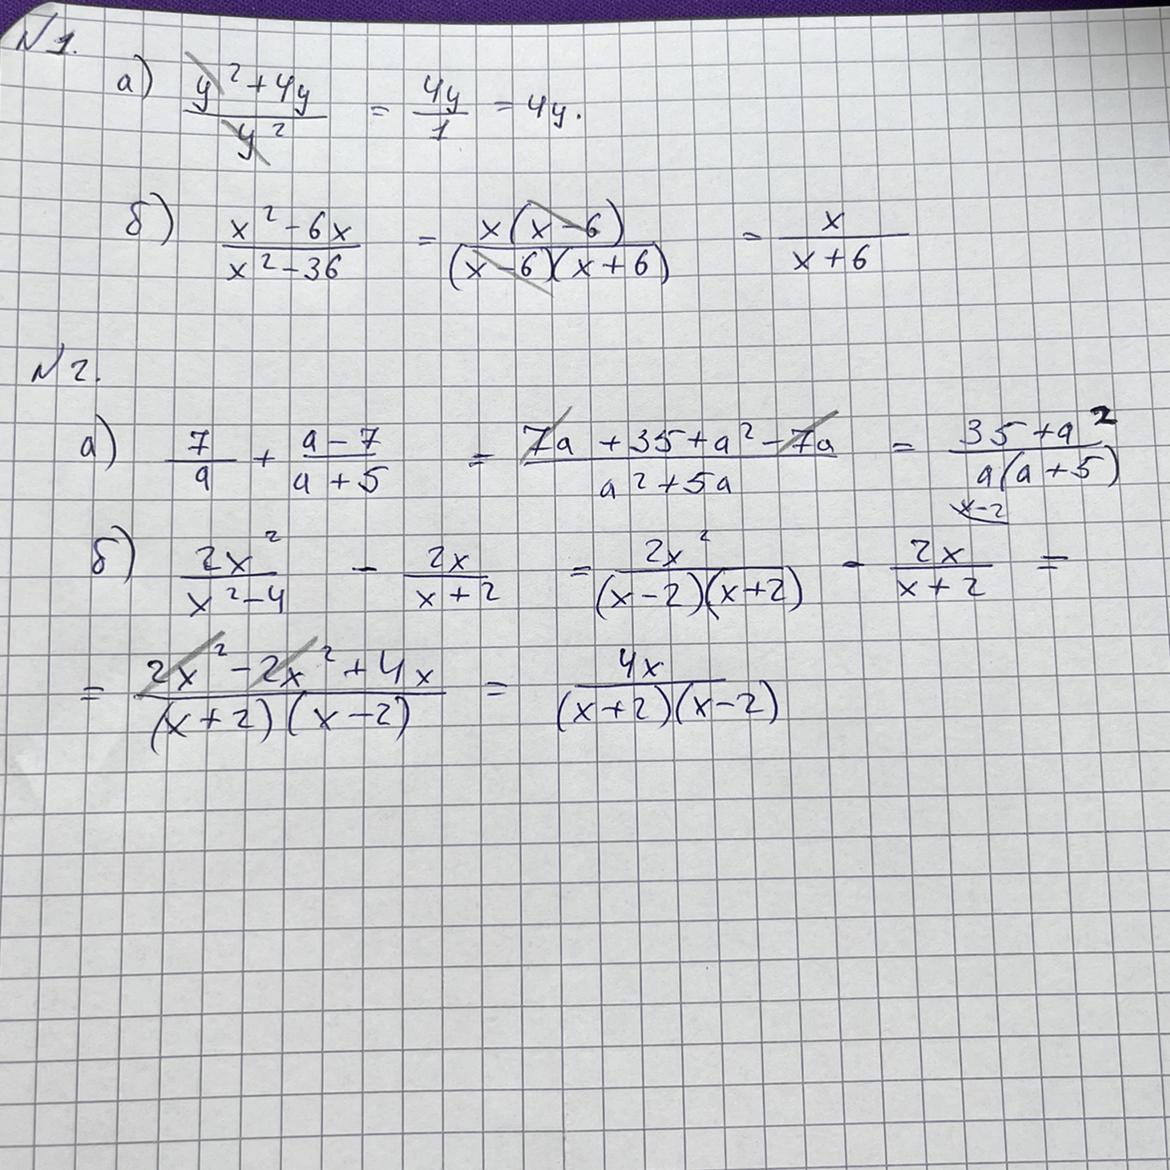 N1.
а) (y² + 4y)/y² = 4y/1 = 4y.
б) (x² - 6x)/(x² - 36) = x(x - 6)/((x - 6)(x + 6)) = x/(x + 6)
N2.
а) 7/a + (a - 7)/(a + 5) = (7a + 35 + a² - 7a)/(a² + 5a) = (35 + a²)/(a(a + 5))
x-2
б) 2x²/(x² - 4) - 2x/(x + 2) = 2x²/((x - 2)(x + 2)) - 2x/(x + 2) =
= (2x² - 2x² + 4x)/((x + 2)(x - 2)) = 4x/((x + 2)(x - 2))